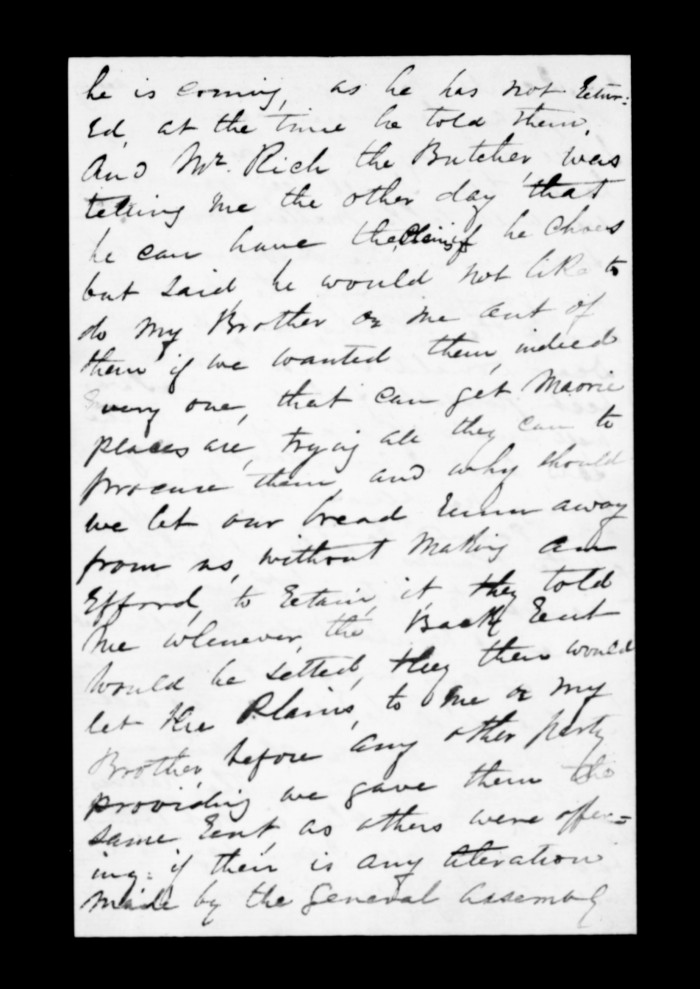 he is coming, as he has not Retur=
Ed, at the time he told them,
And Mr. Rich the Butcher, was
telling me the other day that
he can have the if he choes
but said he would not like to
do my Brother or me out of
them if we wanted them, indeed
Every one, that can get Maorie
places are, trying all they can to
procure them, and why should
we let our bread Runn away
from us, without Making an
Efford, to Retain, it they told
Me whenever, the Back Rent
would be setled, they then would
let the Plains, to Me or My
Brother before any other party
providing we gave them the
same Rent, as others were offer=
ing: if their is any Alteration
made by the General Assembly